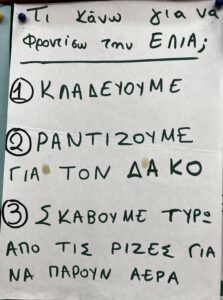 Τι κάνω για να
Φροντίσω την ΕΛΙΑ;
1 ΚΛΑΔΕΥΟΥΜΕ
2 ΡΑΝΤΙΖΟΥΜΕ
ΓΙΑ ΤΟΝ ΔΑΚΟ
3 ΣΚΑΒΟΥΜΕ ΓΥΡΩ
ΑΠΟ ΤΙΣ ΡΙΖΕΣ ΓΙΑ
ΝΑ ΠΑΡΟΥΝ ΑΕΡΑ